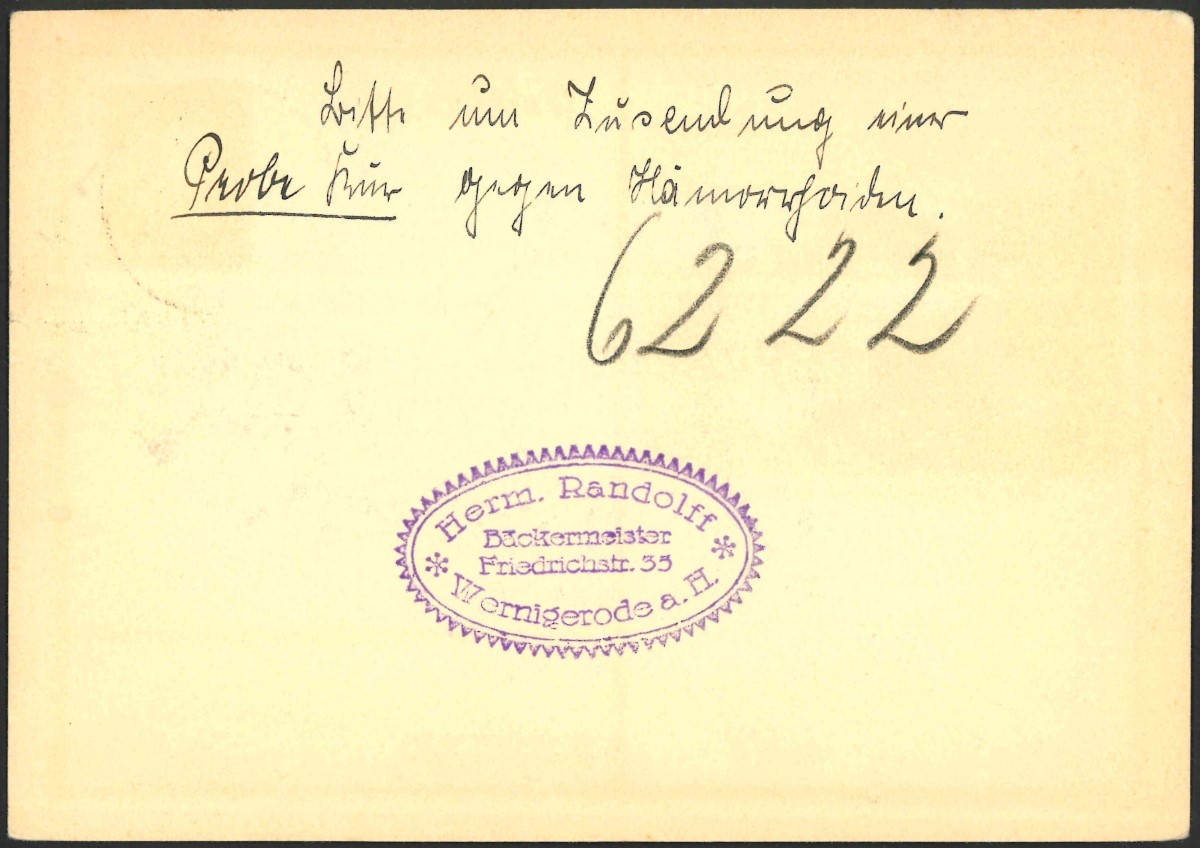 Bitte um Zusendung einer
Probe Kur gegen Hämorrhoiden.
6222
Herm. Randolff
Bäckermeister
Friedrichstr. 33
Wernigerode a. H.